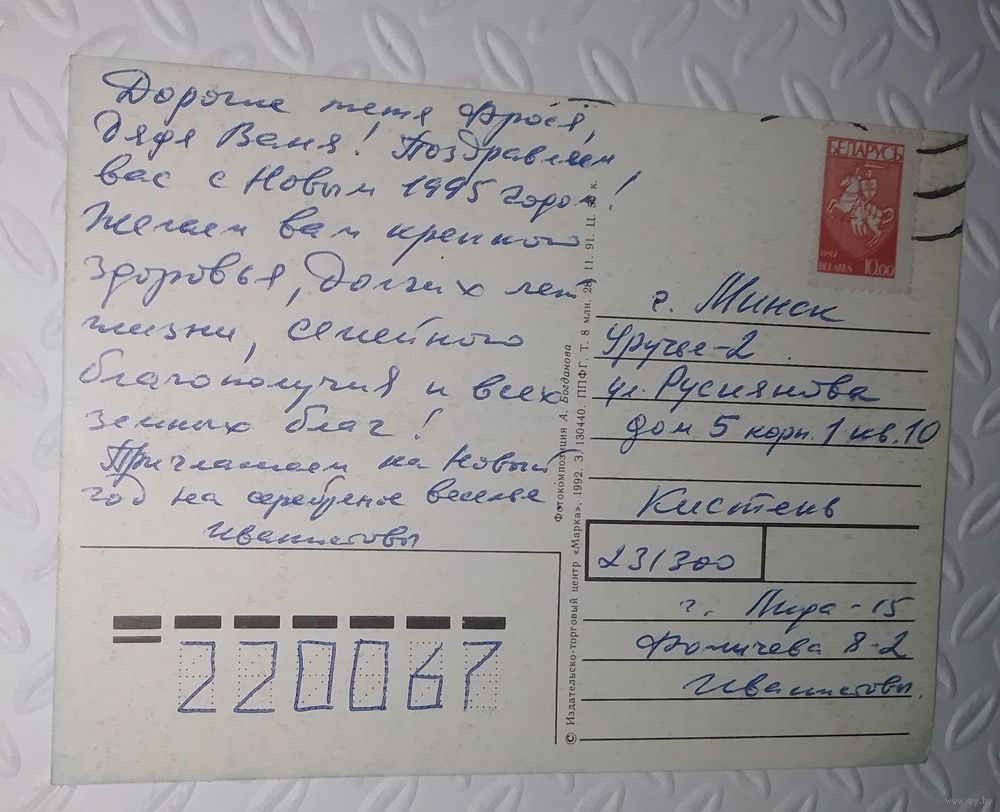 Дорогие тетя Фрося,
дядя Ваня! Поздравляем
вас с Новым 1995 годом!
Желаем вам крепкого
здоровья, долгих лет
жизни, семейного
благополучия и всех
земных благ!
Приглашаем на Новый
год на серебряное веселье
220067
Фотокомпозиция А. Богданова
© Издательско-торговый центр «Марка», 1992. З. 130440. ППФГ. Т. 8 млн. 28. 11. 91. Ц. к.
БЕЛАРУСЬ
1992
BELARUS
10.00
г. Минск
Уручье-2
ул. Русиянова
дом 5 корп. 1 кв. 10
Кистень
231300
г. Лида-15
Фомичева 8-2
www.ay.by